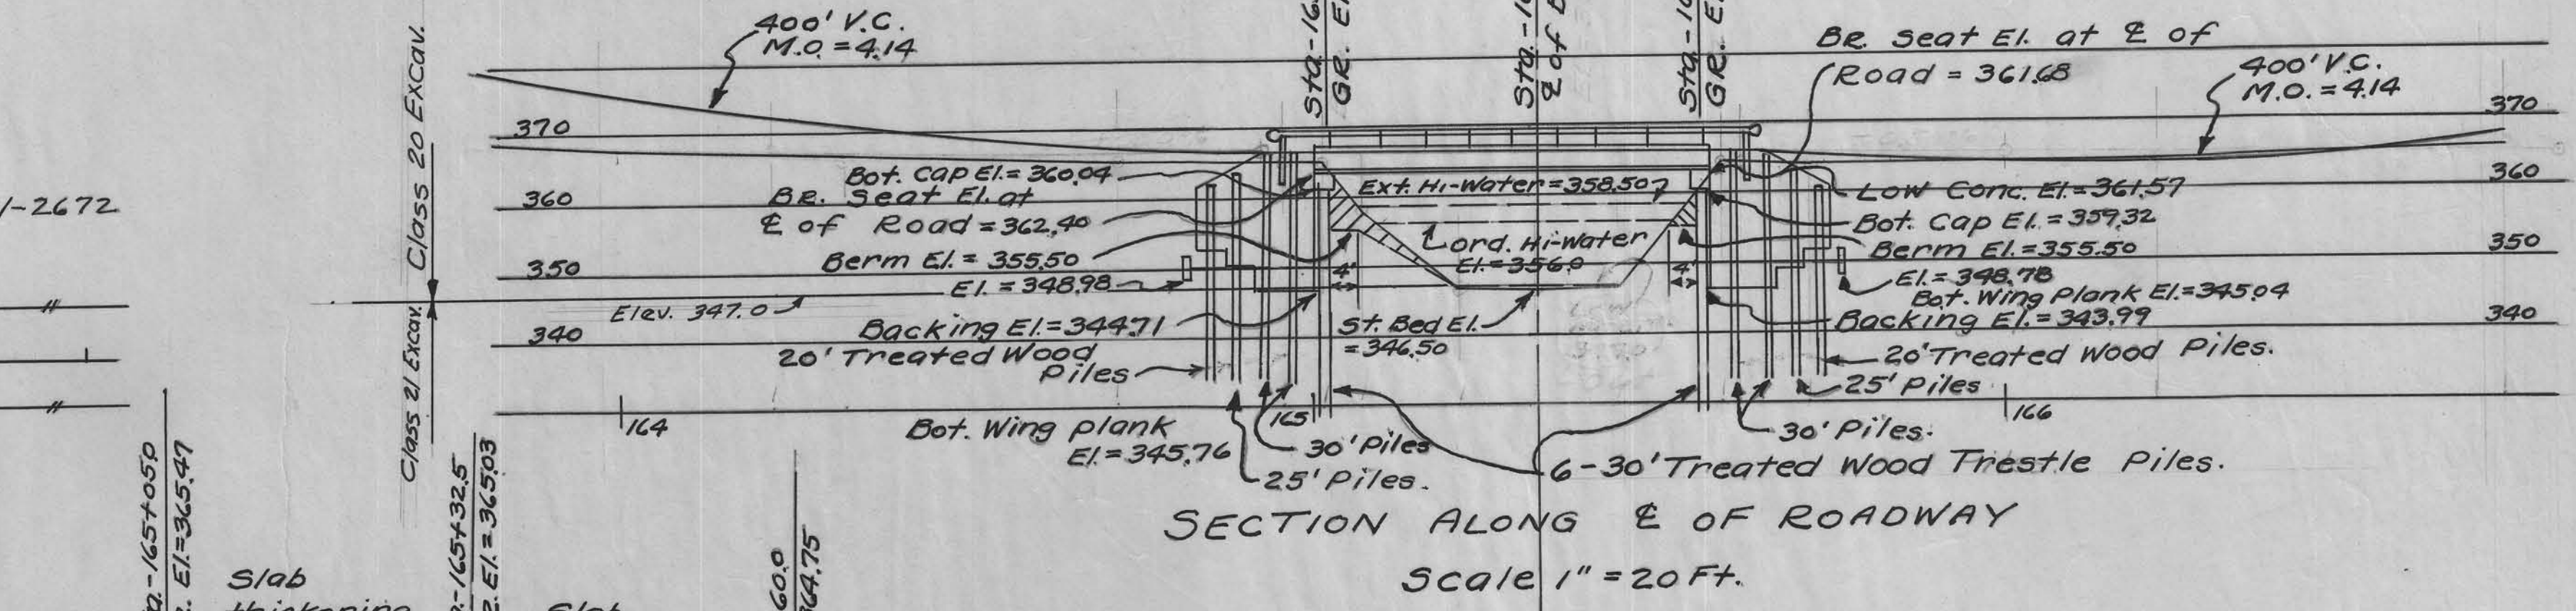 400' V.C.
M.O. = 4.14
Sta.-16
GR. El
Sta.-16
℄ of B
Sta-16
GR. El
BR. Seat El. at ℄ of
Road = 361.68
400' V.C.
M.O. = 4.14
Class 20 Excav.
Class 21 Excav.
1-2672
370
370
360
360
350
350
340
340
Bot. Cap El. = 360.04
BR. Seat El. at
℄ of Road = 362.40
Berm El. = 355.50
El. = 348.98
Elev. 347.0
Backing El. = 344.71
20' Treated Wood
Piles
Ext. Hi-Water = 358.50
Ord. Hi-Water
El. = 356.0
4'
4'
St. Bed El.
= 346.50
Low Conc. El. = 361.57
Bot. Cap El. = 359.32
Berm El. = 355.50
El. = 348.78
Bot. Wing Plank El. = 345.04
Backing El. = 343.99
20' Treated Wood Piles.
25' Piles
30' Piles.
164
165
166
Bot. Wing plank
El. = 345.76
30' Piles
25' Piles.
6-30' Treated Wood Trestle Piles.
SECTION ALONG ℄ OF ROADWAY
Scale 1" = 20 Ft.
a.-165+05.0
. El. = 365.47
.-165+32.5
. El. = 365.03
60.0
364.75
Slab
thickening
Slab